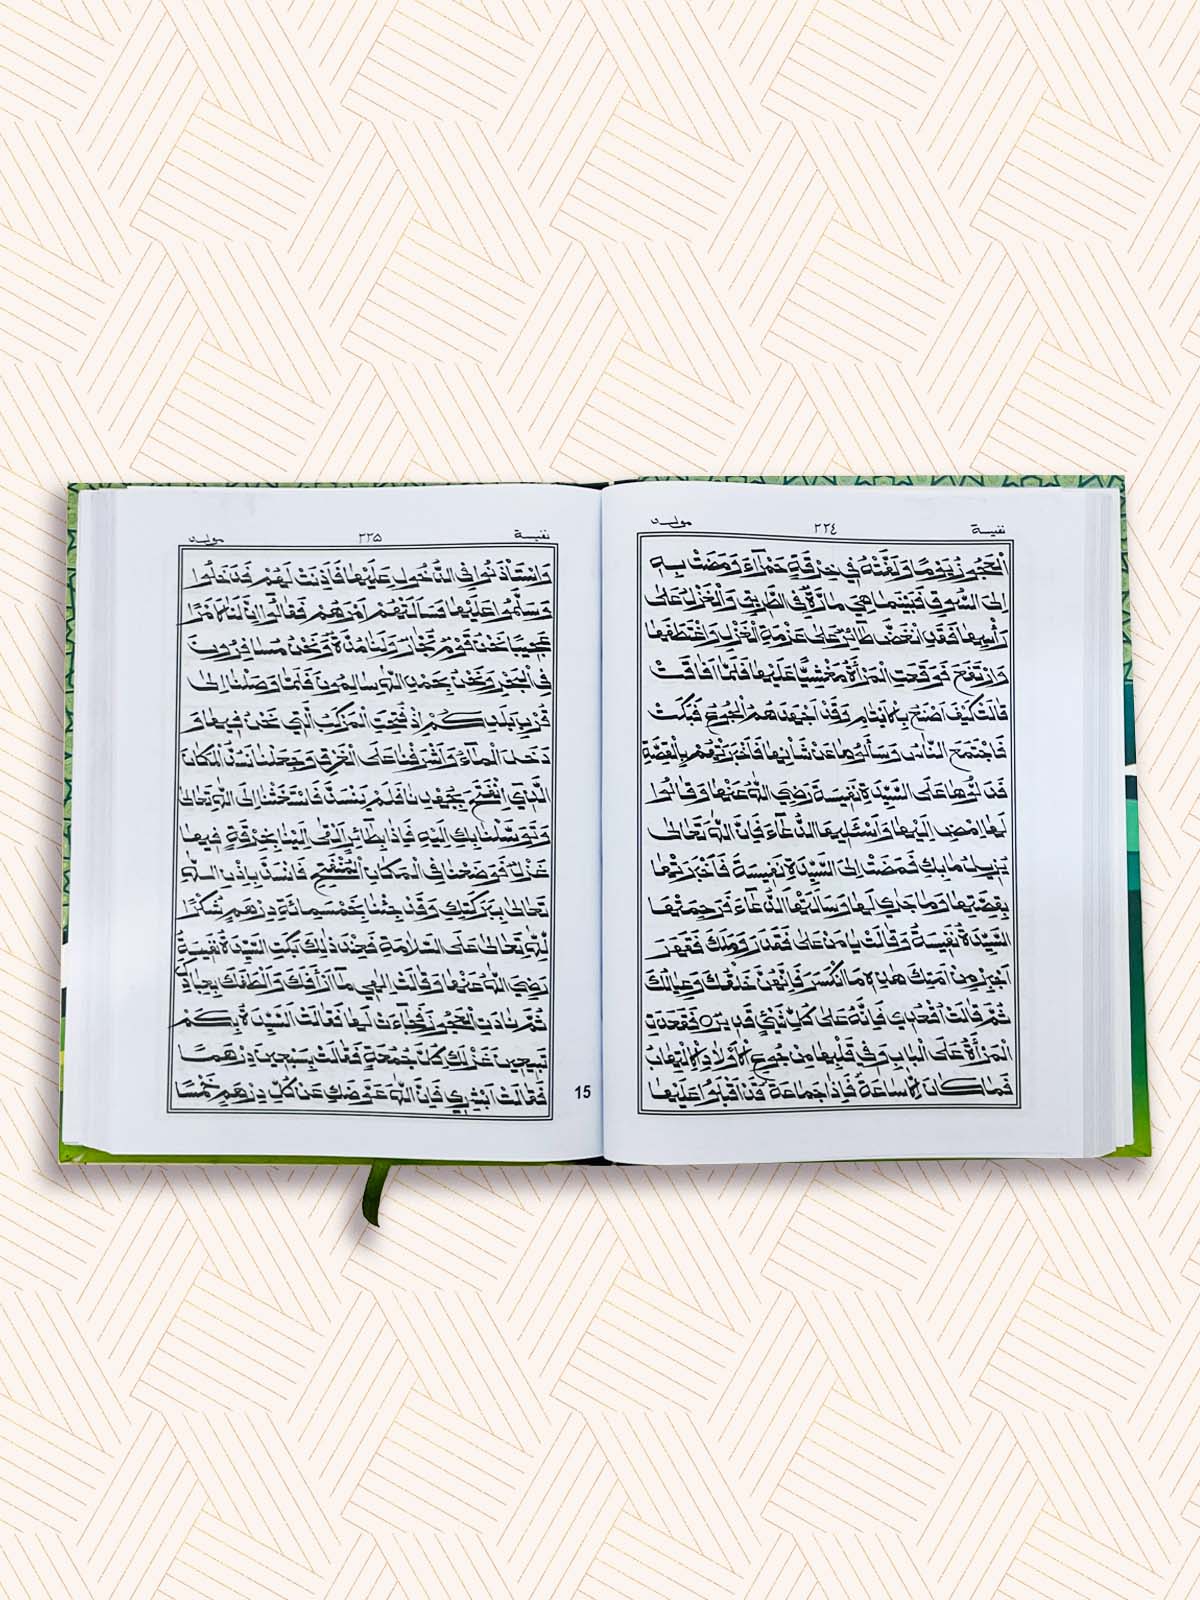 نفيسة ٢٢٤ مولد
الْعَجُوزُ يَوْمًا وَلَفَّتْهُ فِي خِرْقَةٍ حَمْرَآءَ وَمَضَتْ بِهِ
اِلَى السُّوقِ فَبَيْنَمَا هِيَ مَارَّةٌ فِي الطَّرِيقِ وَالْغَزْلُ عَلَى
رَأْسِهَا فَقَدِ انْغَضَّ طَآئِرٌ عَلَى عَزْمَةِ الْغَزْلِ وَاخْتَطَفَهَا
وَارْتَفَعَ فَوَقَعَتِ الْمَرْأَةُ مَغْشِيًّا عَلَيْهَا فَلَمَّا اَفَاقَتْ
قَالَتْ كَيْفَ اَصْنَعُ بِالْاَيْتَامِ وَقَدْ اَجْهَدَهُمُ الْجُوعُ فَبَكَتْ
فَاجْتَمَعَ النَّاسُ وَسَأَلُوهَا عَنْ شَأْنِهَا فَاَخْبَرَتْهُمْ بِالْقِصَّةِ
فَدَلُّوهَا عَلَى السَّيِّدَةِ نَفِيسَةَ رَضِيَ اللّٰهُ عَنْهَا وَقَالُوا
لَهَا امْضِ اِلَيْهَا وَاسْئَلِيهَا الدُّعَآءَ فَاِنَّ اللّٰهَ تَعَالَى
يُزِيلُ مَا بِكِ فَمَضَتْ اِلَى السَّيِّدَةِ نَفِيسَةَ فَاَخْبَرَتْهَا
بِقِصَّتِهَا وَمَا جَرٰى لَهَا وَسَاَلَتْهَا الدُّعَآءَ فَرَحِمَتْهَا
السَّيِّدَةُ نَفِيسَةُ وَقَالَتْ يَا مَنْ عَلَى فَقَدَرَ وَمَلَكَ فَقَهَرَ
اُجْبُرْ مِنْ اَمَتِكَ هٰذِهِ مَا انْكَسَرَ فَاِنَّهُنَّ خَلْقُكَ وَعِيَالُكَ
ثُمَّ قَالَتْ اُقْعُدِي فَاِنَّهُ عَلَى كُلِّ شَيْءٍ قَدِيرٌ فَقَعَدَتِ
الْمَرْأَةُ عَلَى الْبَابِ وَفِي قَلْبِهَا مِنْ جُوعِ الْاَوْلَادِ الْاِلْتِهَابُ
فَمَا كَانَ اِلَّا سَاعَةً فَاِذَا جَمَاعَةٌ قَدْ اَقْبَلُوا عَلَيْهَا
نفيسة ٢٢٥ مولد
وَاسْتَأْذَنُوا فِي الدُّخُولِ عَلَيْهَا فَاَذِنَتْ لَهُمْ فَدَخَلُوا
وَسَلَّمُوا عَلَيْهَا فَسَأَلَتْهُمْ اَمْرَهُمْ فَقَالُوا اِنَّ لَنَا لَاَمْرًا
عَجِيبًا نَحْنُ قَوْمٌ تُجَّارٌ وَلَنَا مُدَّةٌ وَنَحْنُ مُسَافِرُونَ
فِي الْبَحْرِ وَنَحْنُ بِحَمْدِ اللّٰهِ سَالِمُونَ فَلَمَّا وَصَلْنَا اِلَى
قُرْبِ بَلَدِكُمْ اِذْ فُتِحَتِ الْمَرْكَبُ الَّتِي نَحْنُ فِيهَا وَ
دَخَلَ الْمَآءُ وَاَشْرَفْنَا عَلَى الْغَرَقِ وَجَعَلْنَا نَسُدُّ الْمَكَانَ
الَّذِي انْفَتَحَ بِجُهْدِنَا فَلَمْ يَنْسَدَّ فَاسْتَغَثْنَا اِلَى اللّٰهِ تَعَالَى
وَتَوَسَّلْنَا بِكِ اِلَيْهِ فَاِذَا بِطَآئِرٍ اَلْقٰى اِلَيْنَا بِخِرْقَةٍ فِيهَا
غَزْلٌ فَوَضَعْنَا فِي الْمَكَانِ الْمُنْفَتِحِ فَانْسَدَّ بِاِذْنِ اللّٰهِ
تَعَالَى بِبَرَكَتِكِ وَقَدْ جِئْنَا بِخَمْسِمِائَةِ دِرْهَمٍ شُكْرًا
لِلّٰهِ تَعَالَى عَلَى السَّلَامَةِ فَعِنْدَ ذٰلِكَ بَكَتِ السَّيِّدَةُ نَفِيسَةُ
رَضِيَ اللّٰهُ عَنْهَا وَقَالَتْ اِلٰهِي مَآ اَرْأَفَكَ وَاَلْطَفَكَ بِعِبَادِكَ
ثُمَّ نَادَتِ الْعَجُوزَ فَجَآءَتْ لَهَا فَقَالَتِ السَّيِّدَةُ بِكَمْ
تَبِيعِينَ غَزْلَكِ كُلَّ جُمُعَةٍ فَقَالَتْ بِسَبْعِينَ دِرْهَمًا
فَقَالَتْ اَبْشِرِي فَاِنَّ اللّٰهَ عَوَّضَكِ عَنْ كُلِّ دِرْهَمٍ خَمْسًا
15